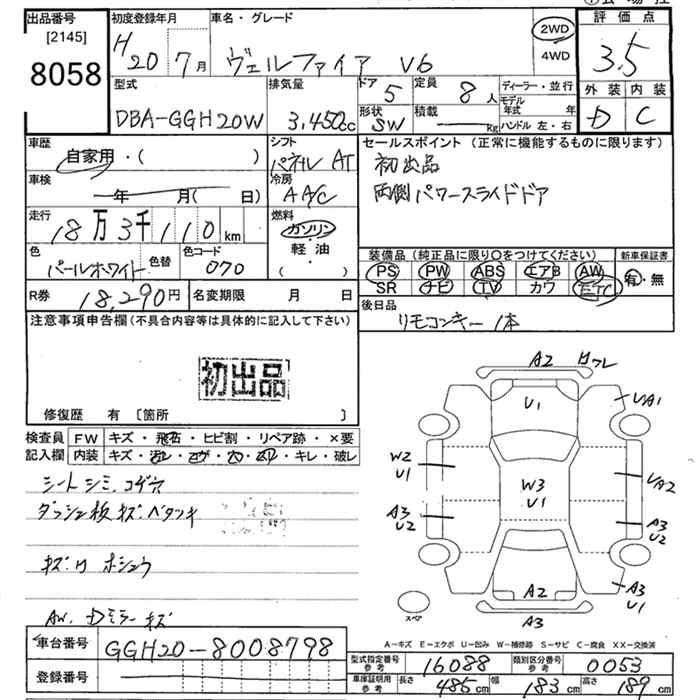 出品番号
[2145]
8058
初度登録年月
H20 7月
車名・グレード
ヴェルファイア V6
2WD
4WD
評価点
3.5
外装 内装
D C
型式
DBA-GGH20W
排気量
3,450cc
ドア
5
形状
SW
定員
8人
積載
kg
ディーラー・並行
モデル年式 年
ハンドル 左・右
車歴
自家用・( )
シフト
パネル AT
車検
年 月( 日)
冷房
AAC
走行
18万3千110km
燃料
ガソリン
軽・油
( )
色
パールホワイト
色替
色コード
070
R券
18,290円
名変期限 月 日
セールスポイント (正常に機能するものに限ります)
初出品
両側パワースライドドア
装備品 (純正品に限り○をつけてください)
新車保証書
PS PW ABS エアB AW
SR ナビ TV カワ ETC
有・無
後日品
リモコンキー 1本
注意事項申告欄 (不具合内容等は具体的に記入して下さい)
初出品
修復歴 有 [箇所 ]
検査員記入欄
FW キズ・飛石・ヒビ割・リペア跡・×要
内装 キズ・汚レ・コゲ・穴・スリ・キレ・破レ
シートシミ、コゲ穴
ダッシュ板キズ・ベタツキ
キズ・凹 ホシュウ
AW、Dミラーキズ
A2 ワレ
U1
UA1
W2
U1
W3
U1
UA2
A3
U2
A3
U2
A2
A3
U1
A3
スペア
A-キズ E-エクボ U-凹み W-補修跡 S-サビ C-腐食 XX-交換済
車台番号
GGH20-8008798
登録番号
型式指定番号 参考
16088
類別区分番号 参考
0053
車庫証明用 参考
長さ 485cm
幅 183cm
高さ 189cm